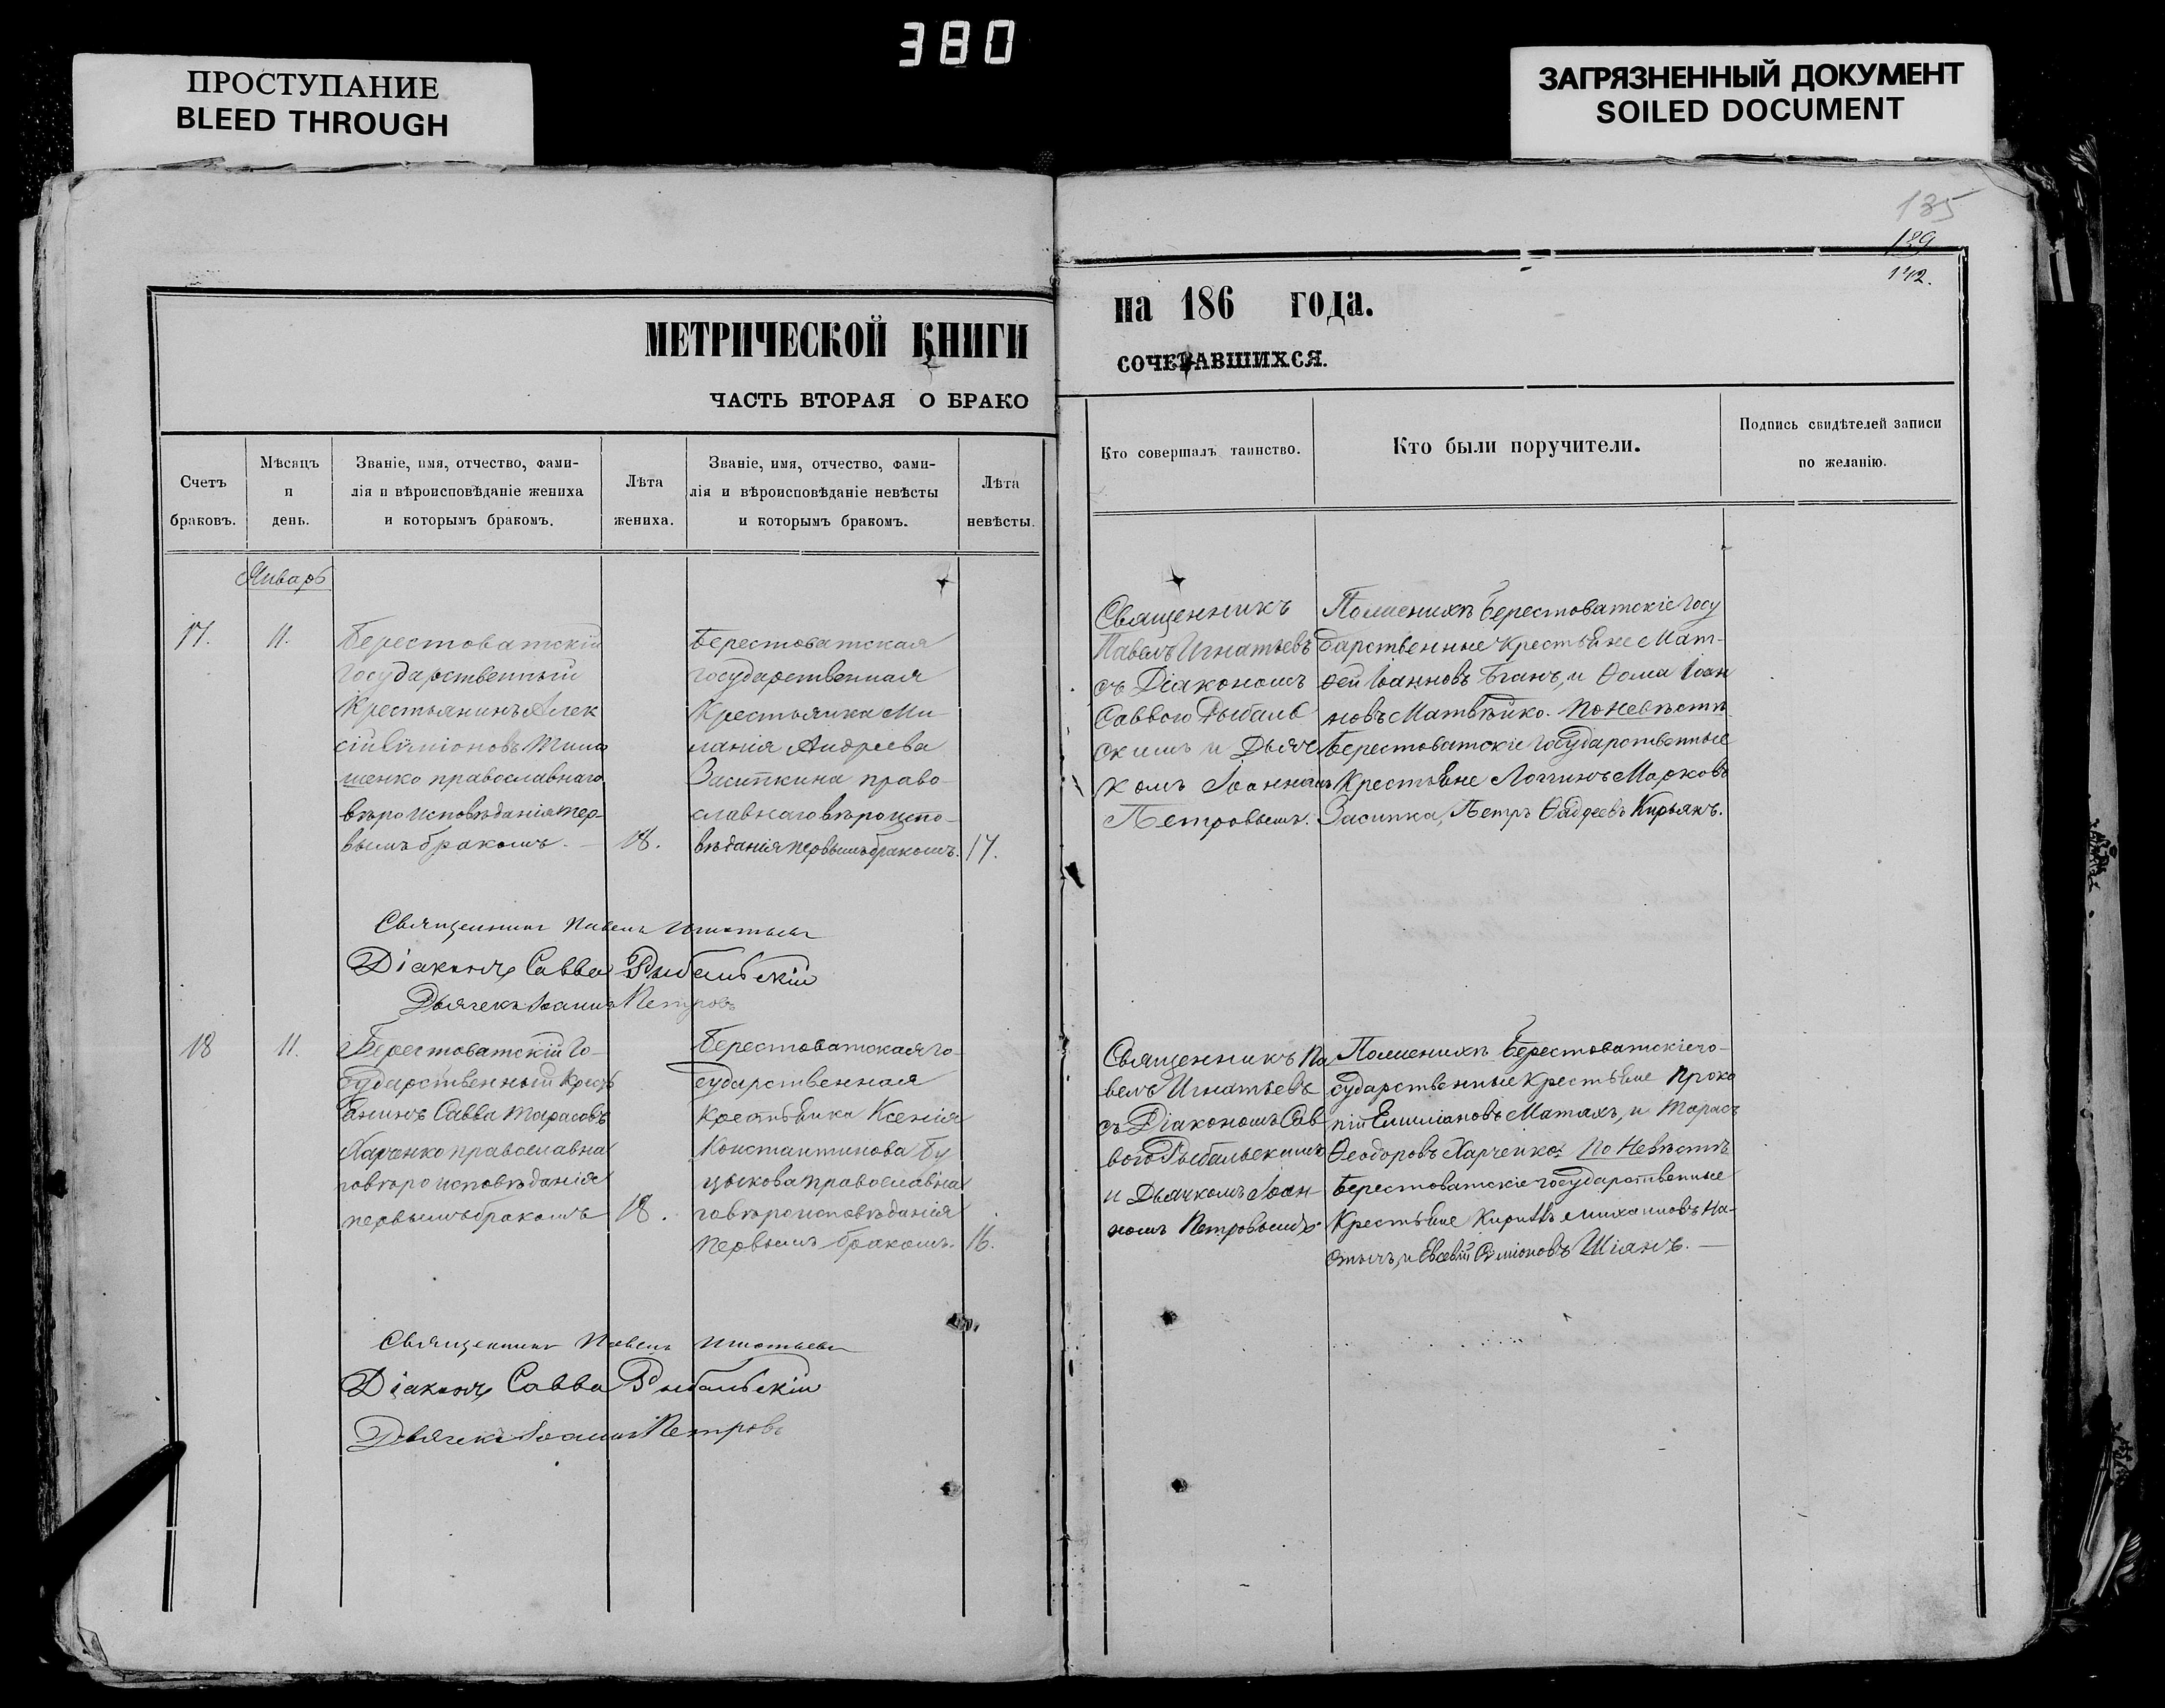 380
ПРОСТУПАНИЕ
BLEED THROUGH
ЗАГРЯЗНЕННЫЙ ДОКУМЕНТ
SOILED DOCUMENT
135
139
142.
МЕТРИЧЕСКОЙ КНИГИ
ЧАСТЬ ВТОРАЯ О БРАКО
на 186 года.
СОЧЕТАВШИХСЯ.
Счетъ
браковъ.
Мѣсяцъ
и
день.
Званіе, имя, отчество, фами-
лія и вѣроисповѣданіе жениха
и которымъ бракомъ.
Лѣта
жениха.
Званіе, имя, отчество, фами-
лія и вѣроисповѣданіе невѣсты
и которымъ бракомъ.
Лѣта
невѣсты.
Кто совершалъ таинство.
Кто были поручители.
Подпись свидѣтелей записи
по желанію.
Январь
17.
11.
Берестоватскій
государственный
Крестьянинъ Алек
сій Симіоновъ Тимо
шенко православнаго
вѣроисповѣданія пер-
вымъ бракомъ.
18.
Берестоватская
государственная
Крестьянка Ми-
ланія Андреева
Засипкина право-
славнаго вѣроиспо-
вѣданія первымъ бракомъ.
17.
Священникъ
Павелъ Игнатьевъ
съ Діакономъ
Саввою Рыбаль
скимъ и Дьяч
комъ Іоанномъ
Петровымъ.
По женихѣ Берестоватскіе Госу
дарственные Крестьяне Мат-
ѳей Іоанновъ Бганъ, и Ѳома Іоан
новъ Матвѣйко. По Невѣстѣ
Берестоватскіе государственные
Крестьяне Логгинъ Марковъ
Засипка, Петръ Ѳаддеевъ Кирьянъ.
Священникъ Павелъ Игнатьевъ
Діаконъ Савва Рыбальскій
Дьячекъ Іоаннъ Петровъ
18
11.
Берестоватскій Го-
сударственный Кресть
янинъ Савва Тарасовъ
Харченко православна
го вѣроисповѣданія
первымъ бракомъ
18.
Берестоватская го-
сударственная
крестьянка Ксенія
Константинова Бу
цыкова православна
го вѣроисповѣданія
первымъ бракомъ.
16.
Священникъ Па
велъ Игнатьевъ
съ Діакономъ Сав
вою Рыбальскимъ
и Дьячкомъ Іоан-
номъ Петровымъ
По женихѣ Берестоватскіе го-
сударственные крестьяне Проко
пій Емиліановъ Матяхъ, и Тарасъ
Ѳеодоровъ Харченко. По Невѣстѣ
Берестоватскіе государственные
Крестьяне Кириллъ Михаиловъ
и Евсевій Симіоновъ Шіянъ.
Священникъ Павелъ Игнатьевъ
Діаконъ Савва Рыбальскій
Дьячекъ Іоаннъ Петровъ